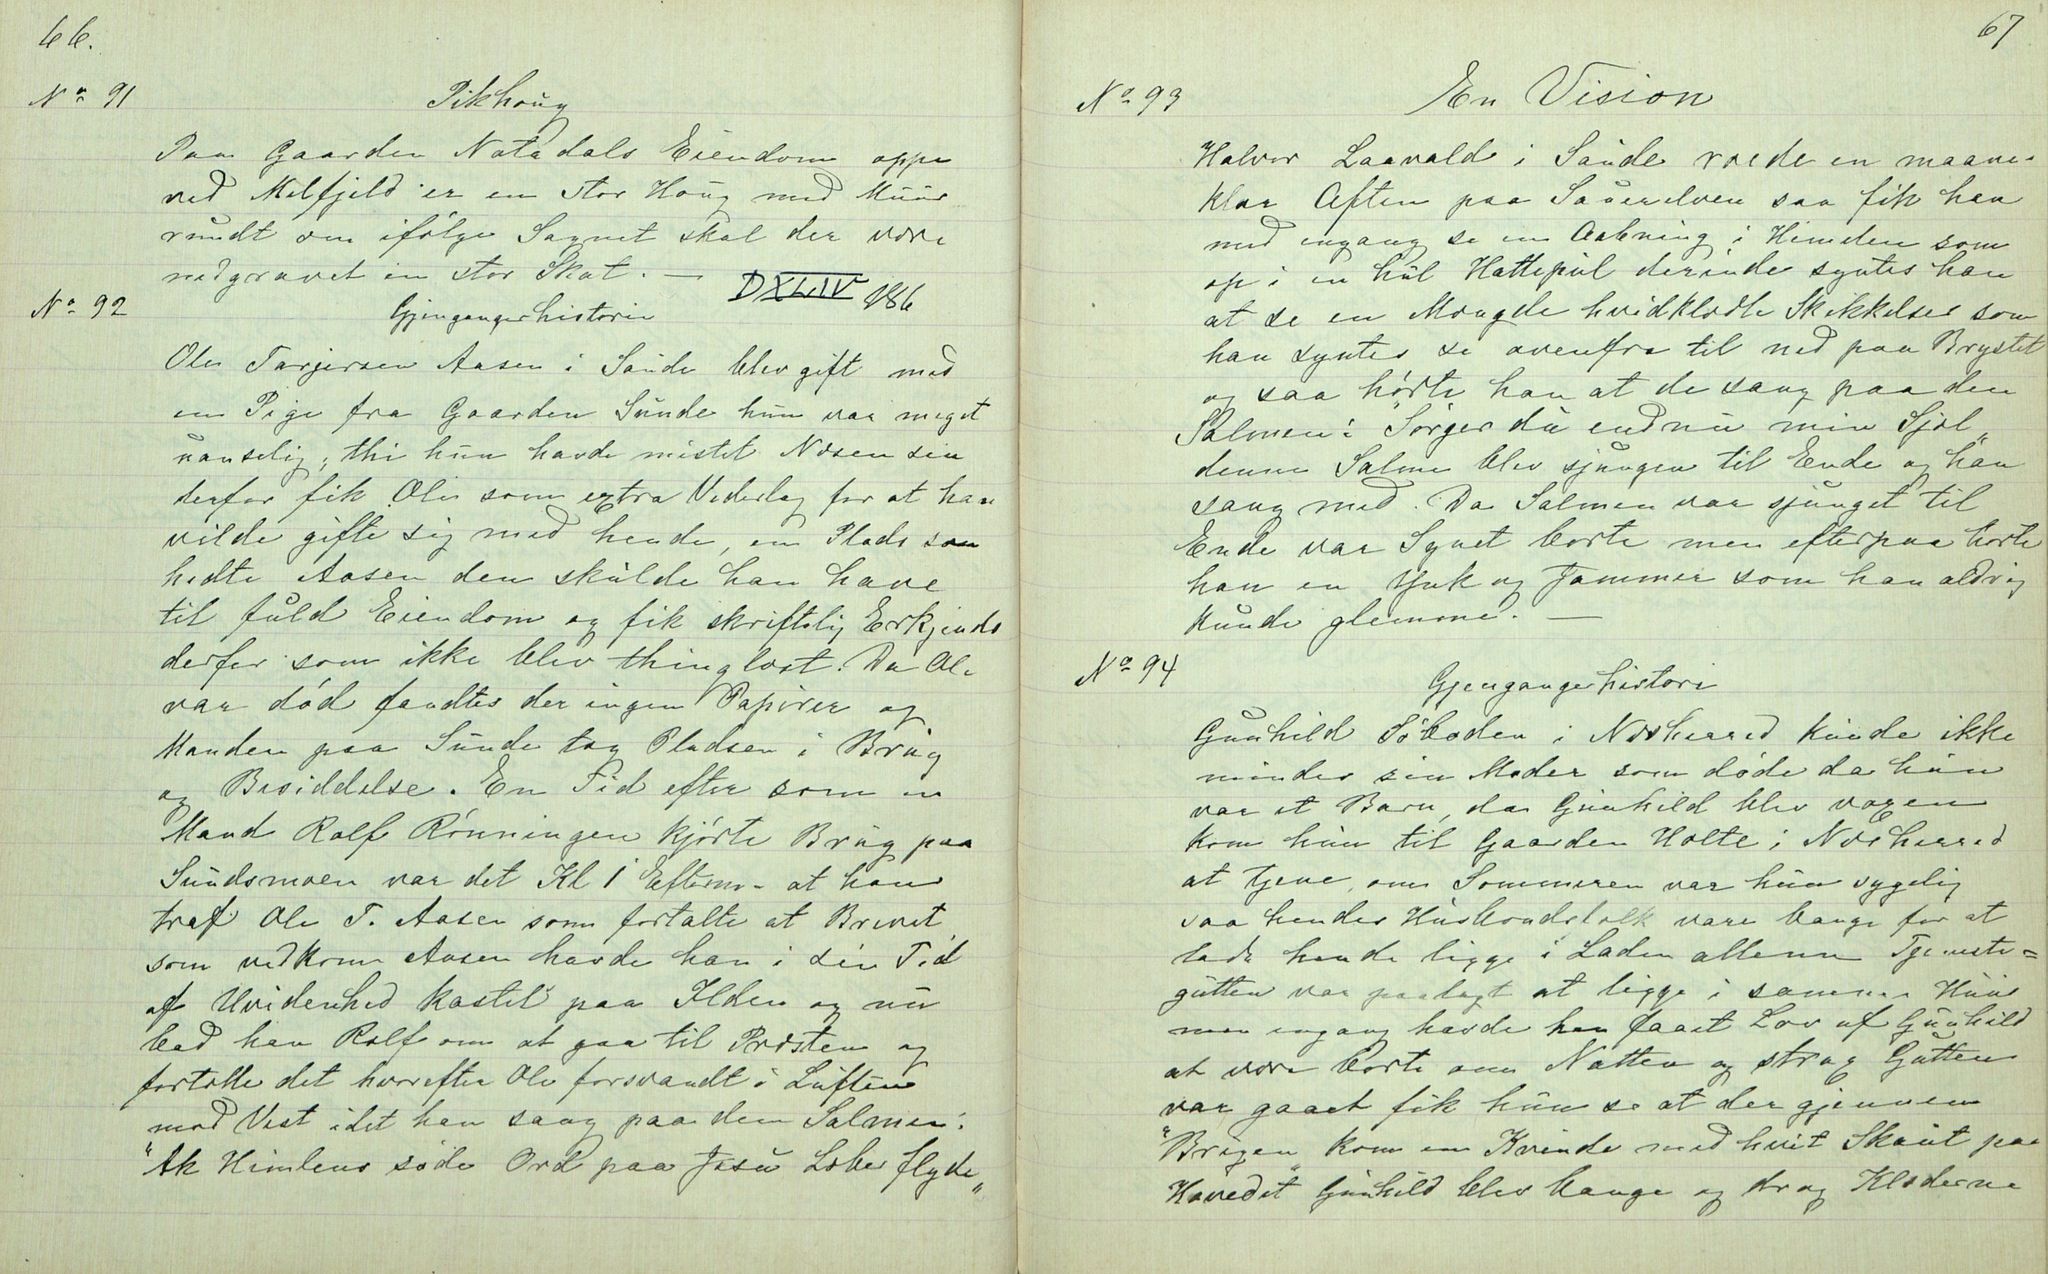 66.
No 91
Pikhoug
Paa Gaarden Natadals Eiendom oppe
ved Melfjeld er en stor Houg med Muur
rundt om ifølge Sagnet skal der være
nedgravet en stor Skat. —
DXLIV 186
No 92
Gjengangerhistorie
Ole Tarjersen Aasen i Saude blev gift med
en Pige fra Gaarden Sunde hun var meget
vanselig, thi hun havde mistet Næsen sin
derfor fik Ole som extra Vederlag for at han
vilde gifte sig med hende, en Plads som
hedte Aasen den skulde han have
til fuld Eiendom og fik skriftelig Erkjends
derfor som ikke blev thinglæst. Da Ole
var død fandtes der ingen Papirer og
Manden paa Sunde tog Pladsen i Brug
og Besiddelse. En Tid efter som en
Mand Rolf Rønningen kjørte Brug paa
Sundsmoen var det Kl 1 Efterm. at han
traf Ole T. Aasen som fortalte at Brevet
som vedkom Aasen havde han i sin Tid
af Uvidenhed kastet paa Ilden og nu
bad han Rolf om at gaa til Præsten og
fortælle det hvorefter Ole forsvandt i Luften
mod Vest idet han sang paa den Salmen:
"Ak Himlens søde Ord paa Jesu Læber flyde„
67
No 93
En Vision
Halvor Laavald i Saude roede en maane-
klar Aften paa Sauerelven saa fik han
med engang se en Aabning i Himlen som
op i en hul Hattepul derinde syntes han
at se en Mængde hvidklædte Skikkelser som
han syntes se ovenfra til ned paa Brystet
og saa hørte han at de sang paa den
Salmen: "Sørger du endnu min Sjæl„
denne Salme blev sjungen til Ende og han
sang med. Da Salmen var sjunget til
Ende var Synet borte men efterpaa hørte
han en Ynk og Jammer som han aldrig
kunde glemme. —
No 94
Gjengangerhistorie
Gunhild Søboden i Næsherred kunde ikke
mindes sin Moder som døde da hun
var et Barn, da Gunhild blev voxen
kom hun til Gaarden Holte i Næsherred
at tjene, om Sommeren var hun sygelig
saa hendes Husbondsfolk vare bange for at
lade hende ligge i Laden allene Tjeneste=
gutten var paalagt at ligge i samme Hus
men engang havde han faaet Lov af Gunhild
at være borte om Natten og strax Gutten
var gaaet fik hun se at der gjennem
"Brigen„ kom en Kvinde med hvit Skaut paa
Hovedet Gunhild blev bange og drog Klæderne